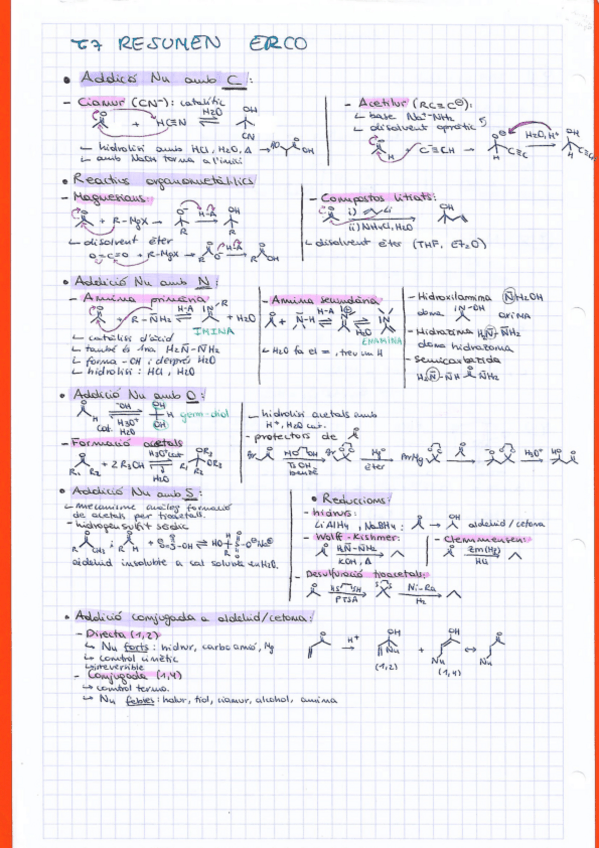 T7 RESUMEN ERCO
• Addició Nu amb C:
- Cianur (CN⁻): catalític
+ HC≡N ⇌ H2O
OH
CN
↳ hidròlisi amb HCl, H2O, Δ → HO OH
↳ amb NaOH torna a l'inici
- Acetilur (RC≡C⊖):
↳ base Na⁺⁻NH2
↳ disolvent apròtic
+ C≡CH →
H2O, H⁺
OH
• Reactius organometàl·lics
- Magnesians:
+ R-MgX → H-A → OH
R
↳ disolvent èter
O=C=O + R-MgX → R O H-A → R OH
- Compostos litiats:
i) Li
ii) NH4Cl, H2O
OH
↳ disolvent èter (THF, Et2O)
• Addició Nu amb N:
- Amina primària
+ R-NH2 ⇌ H-A + H2O
IMINA
↳ catàlisi d'àcid
↳ també és dna. H2N-NH2
↳ forma -OH i després H2O
↳ hidròlisi: HCl, H2O
- Amina secundària
+ N-H ⇌ H-A
H2O
ENAMINA
↳ H2O fa el =, treu un H
- Hidroxilamina NH2OH
dona N-OH oxina
- Hidrazina H2N-NH2
dona hidrazona
- Semicarbazida
H2N-NH NH2
• Addició Nu amb O:
H ⇌ OH
H3O⁺ cat. H2O
OH
H
OH
germ-diol
- Formació acetals
R1 R2 + 2R3OH ⇌ H3O⁺cat R1 OR3 OR3
H2O
↳ hidròlisi acetals amb
H⁺, H2O cat.
- protectors de
Br HO OH TsOH Br Mg° èter BrMg H3O⁺
• Addició Nu amb S:
↳ mecanisme anàleg formació
de acetals per tioacetals.
- hidrogensulfit sòdic
R CH3 ; R H
aldehid insoluble a sal soluble en H2O.
• Reduccions:
- hidrurs:
LiAlH4, NaBH4: → OH aldehid/cetona
- Wolff-Kishner:
H2N-NH2
KOH, Δ
- Clemmensen:
Zn(Hg)
HCl
- Desulfuració tioacetals:
HS SH
PTSA
S S
Ni-Ra
H2
• Addició conjugada a aldehid/cetona:
- Directa (1,2)
↳ Nu forts: hidrur, carboanió, Mg
↳ control cinètic
↳ irreversible
- Conjugada (1,4)
↳ control termo.
↳ Nu febles: halur, tiol, cianur, alcohol, amina
H⁺ → OH Nu + OH Nu ↔ Nu
(1,2) (1,4)